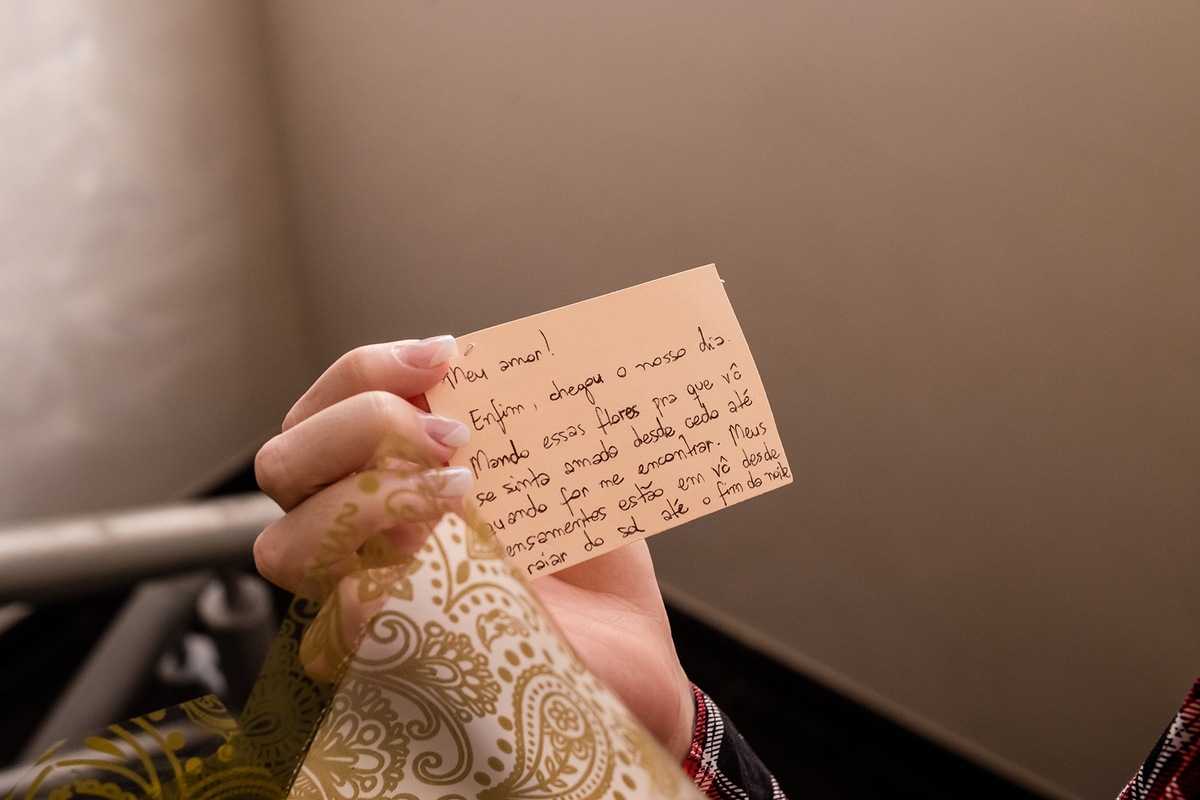 Meu amor!
Enfim, chegou o nosso dia.
Mando essas flores pra que vô
se sinta amada desde cedo até
quando for me encontrar. Meus
ensamentos estão em vô desde
raiar do sol até o fim da noite